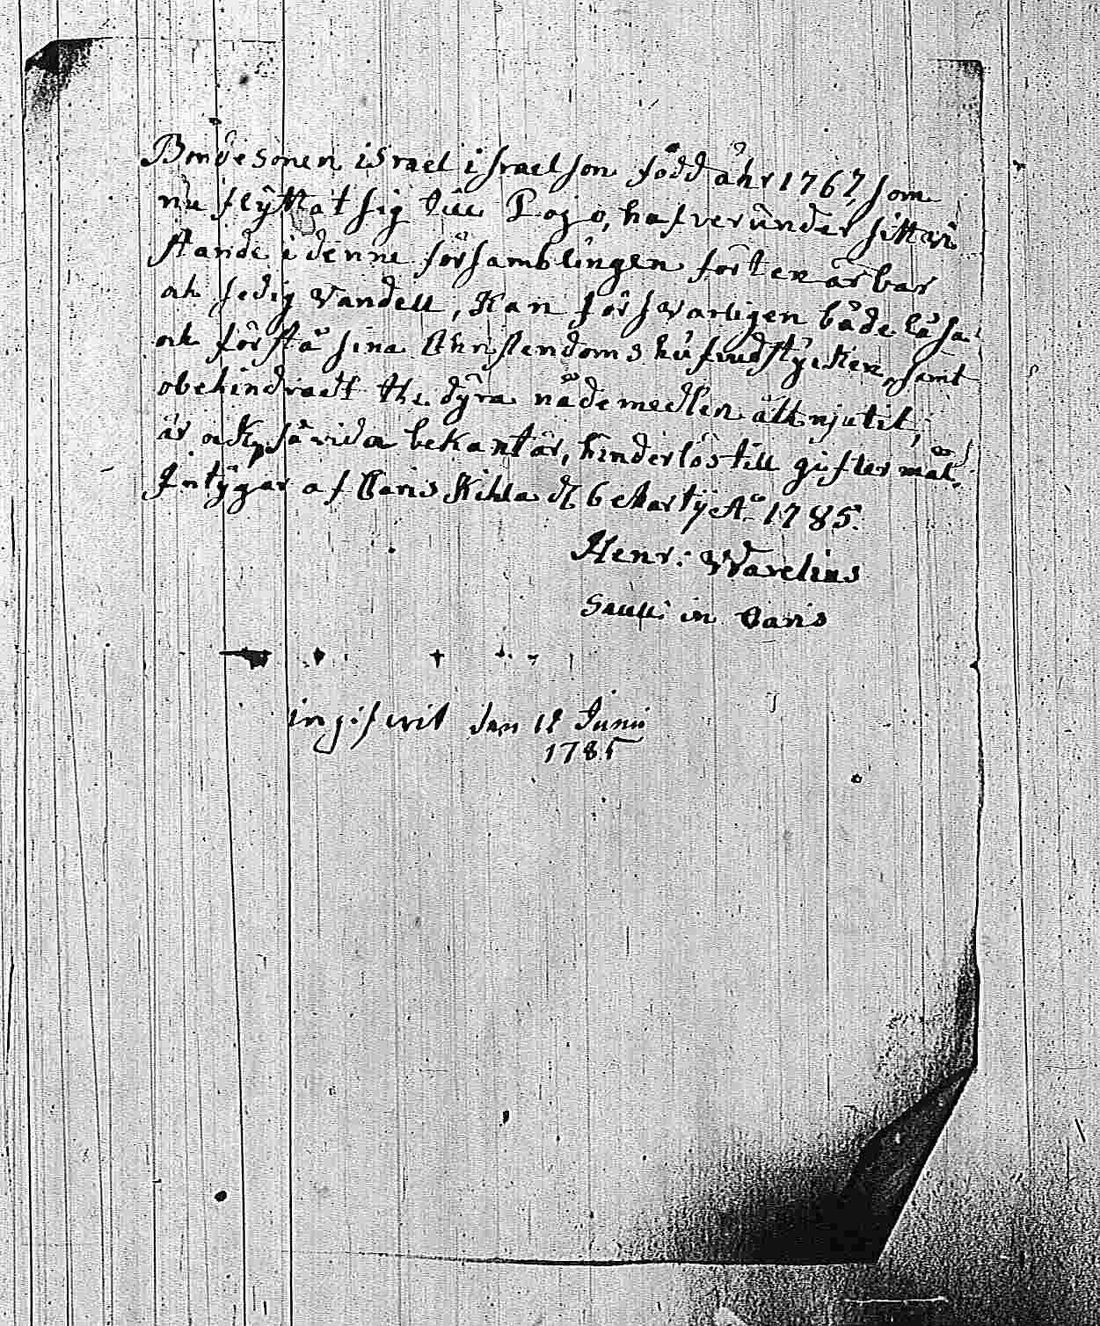 Bondesonen israel israelson född åhr 1767, som
nu flÿttat sig till Pojo, hafver under sitt wi
stande i denne församblingen fördt en ärbar
och sedig vandell, kan försvarligen både läsa
och förstå sina Christendoms hufvudstÿcken, samt
obehindradt the dÿra nådemedlen åttnjutit,
är ock, såvida bekant är, hinderlös till giftermål.
Intÿgar af Caris Kihla d. 6 Martÿ Aº 1785.
Henr: Warelius
Sacell: in Caris
ingifwit den 12 Junii
1785